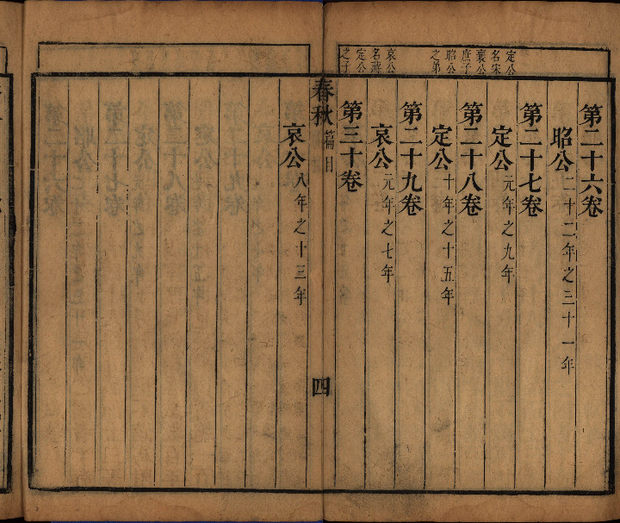 定公
名宋
襄公
庶子
昭公
之弟
哀公
名蔣
定公
之子
第二十六卷
昭公二十二年之三十一年
第二十七卷
定公元年之九年
第二十八卷
定公十年之十五年
第二十九卷
哀公元年之七年
第三十卷
春秋 篇目 四
哀公八年之十三年